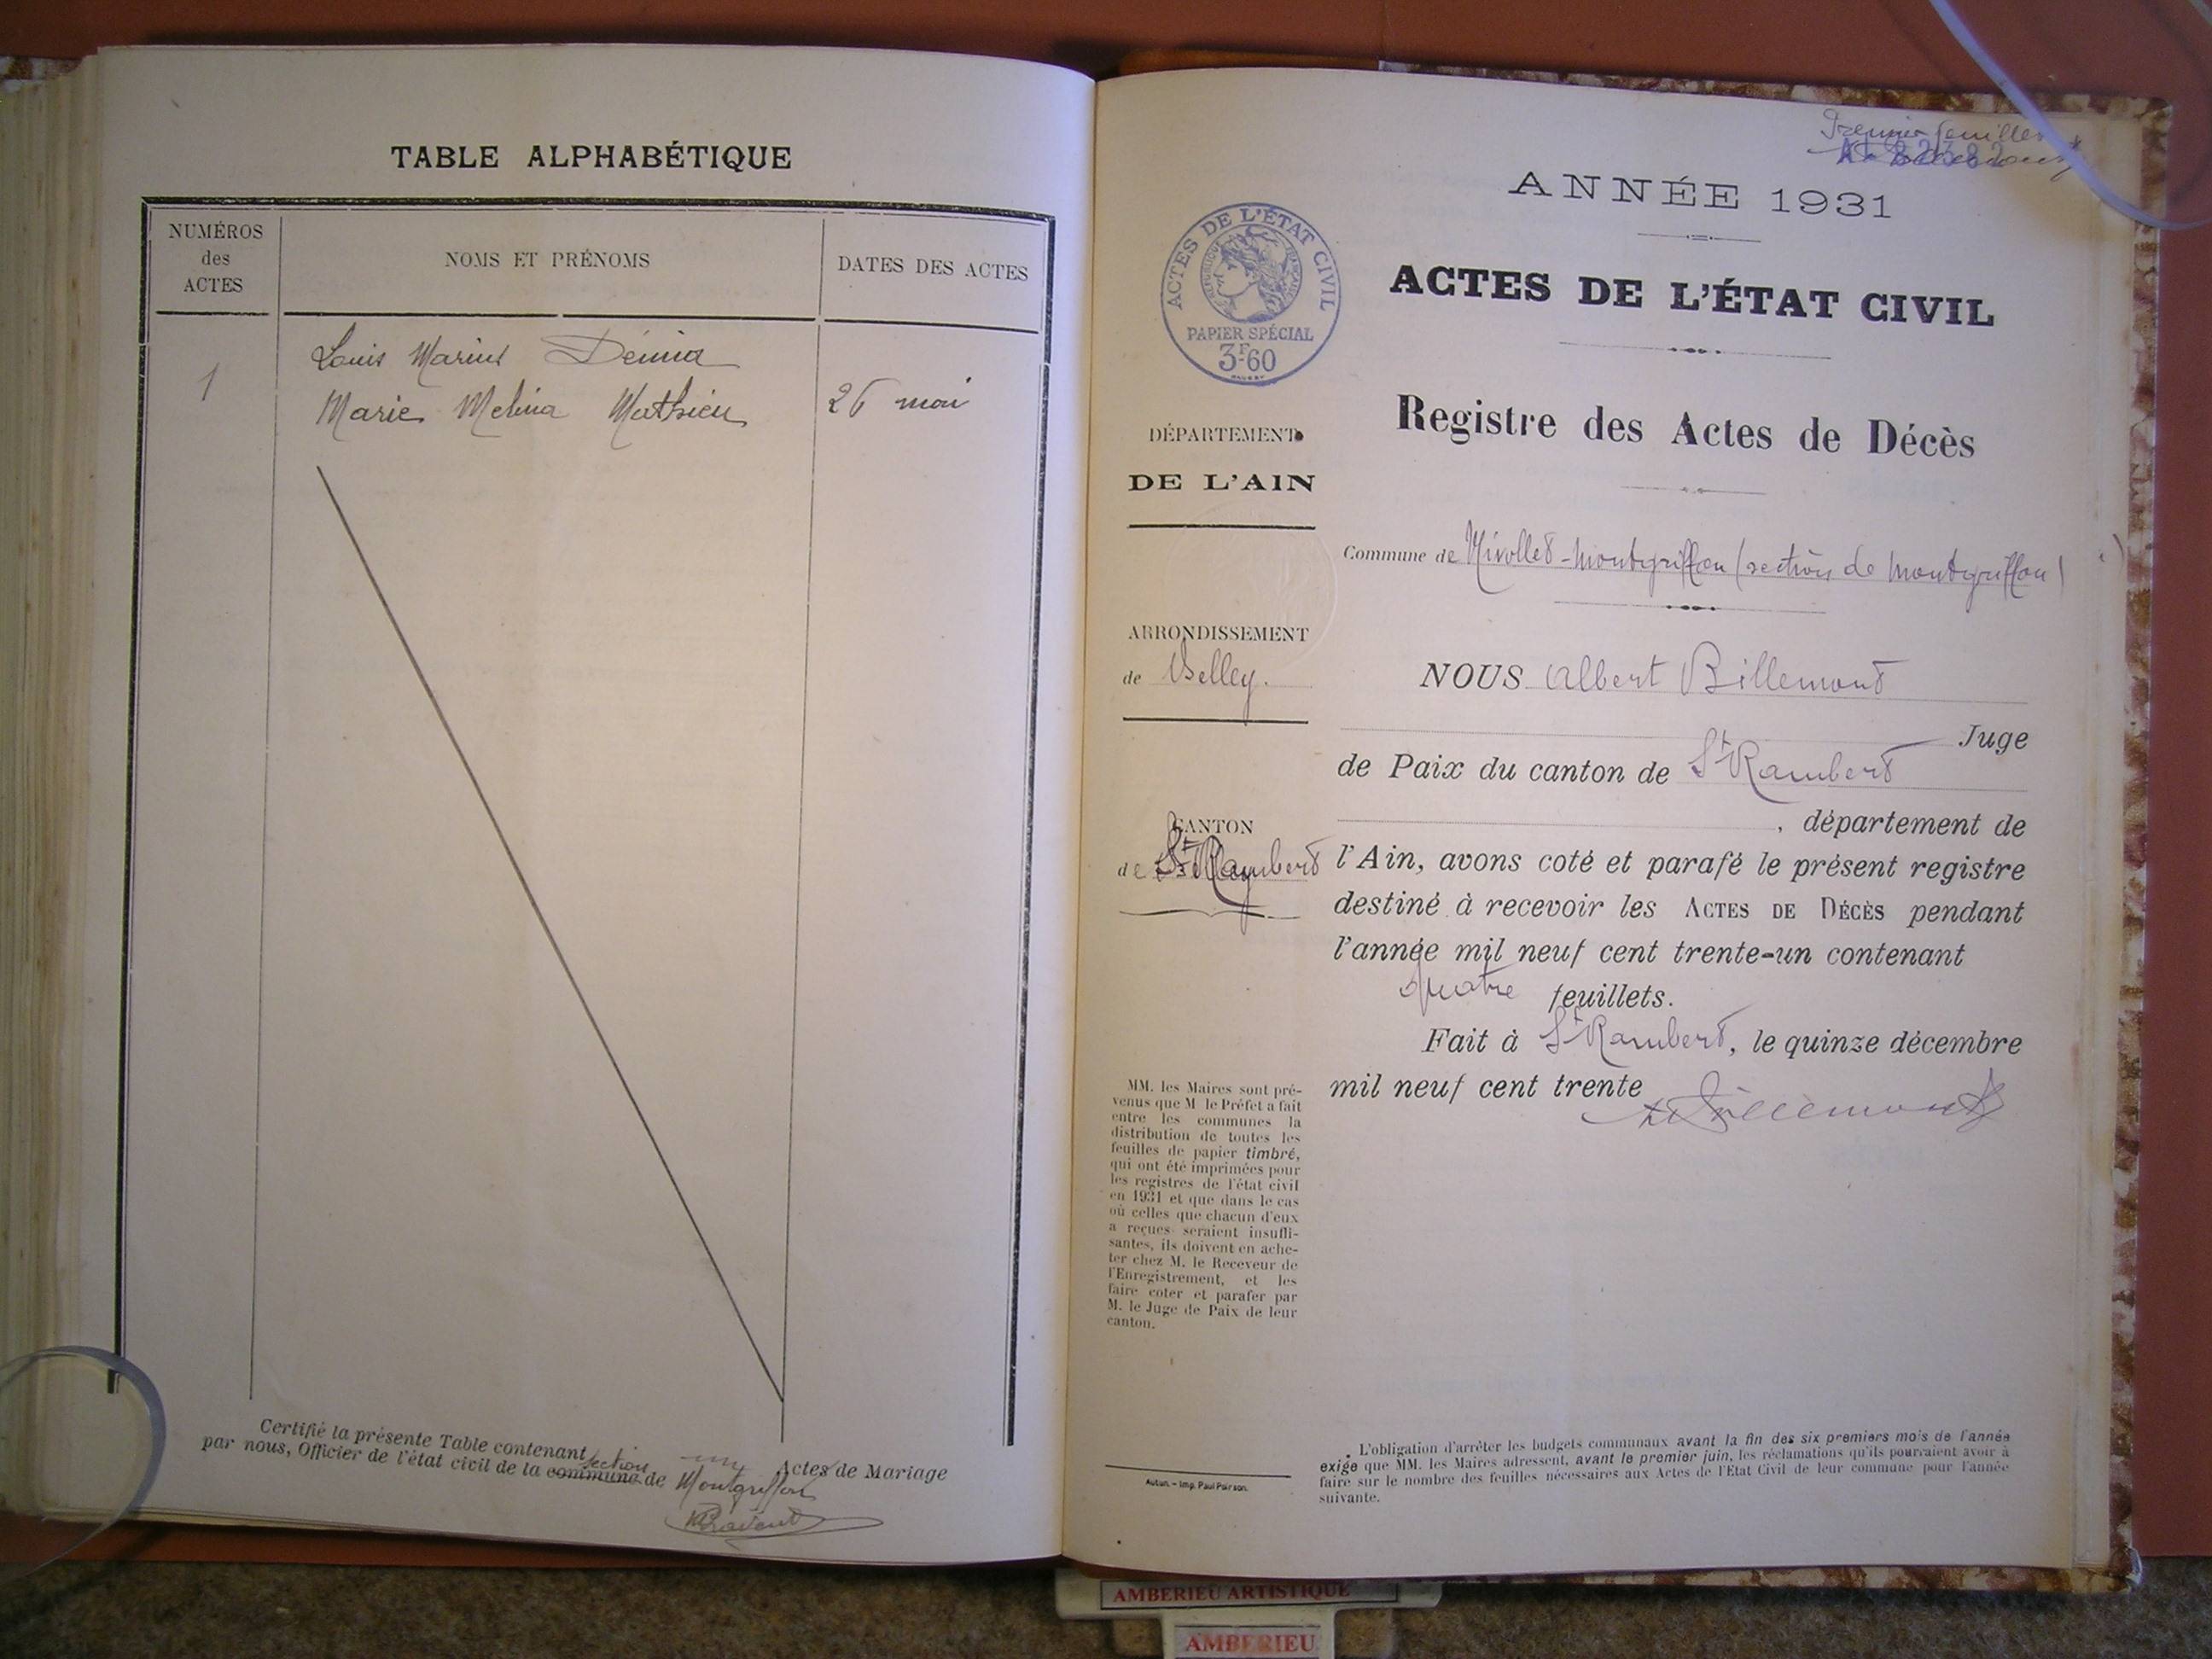 TABLE ALPHABÉTIQUE
NUMÉROS
des
ACTES
NOMS ET PRÉNOMS
DATES DES ACTES
Louis Marius Demia
1
Marie Melina Mathieu
26 mai
Certifié la présente Table contenant un Actes de Mariage
par nous, Officier de l'état civil de la commune section de Montgriffon
Premier feuillet
ANNÉE 1931
ACTES DE L'ÉTAT CIVIL
RÉPUBLIQUE FRANÇAISE
PAPIER SPÉCIAL
3F60
ACTES DE L'ÉTAT CIVIL
Registre des Actes de Décès
DÉPARTEMENT
DE L'AIN
Commune de Nivollet-Montgriffon (section de Montgriffon)
ARRONDISSEMENT
de Belley.
NOUS Albert Billemont
Juge
de Paix du canton de St Rambert
, département de
CANTON
de St Rambert
l'Ain, avons coté et parafé le présent registre
destiné à recevoir les ACTES DE DÉCÈS pendant
l'année mil neuf cent trente-un contenant
quatre feuillets.
Fait à St Rambert, le quinze décembre
mil neuf cent trente
MM. les Maires sont pré-
venus que M le Préfet a fait
entre les communes la
distribution de toutes les
feuilles de papier timbré,
qui ont été imprimées pour
les registres de l'état civil
en 1931 et que dans le cas
où celles que chacun d'eux
a reçues seraient insuffi-
santes, ils doivent en ache-
ter chez M. le Receveur de
l'Enregistrement, et les
faire coter et parafer par
M. le Juge de Paix de leur
canton.
Autun. - Imp. Paul Poirson.
L'obligation d'arrêter les budgets communaux avant la fin des six premiers mois de l'année
exige que MM. les Maires adressent, avant le premier juin, les réclamations qu'ils pourraient avoir à
faire sur le nombre des feuilles nécessaires aux Actes de l'Etat Civil de leur commune pour l'année
suivante.
AMBERIEU ARTISTIQUE
AMBERIEU